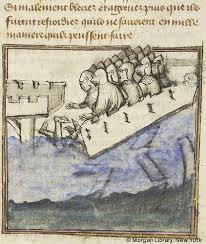 si malement blecie et atorne puis que ilz
furent refroidier quilz ne savoient en nulle
maniere quilz peussent faire
© Morgan Library, New York